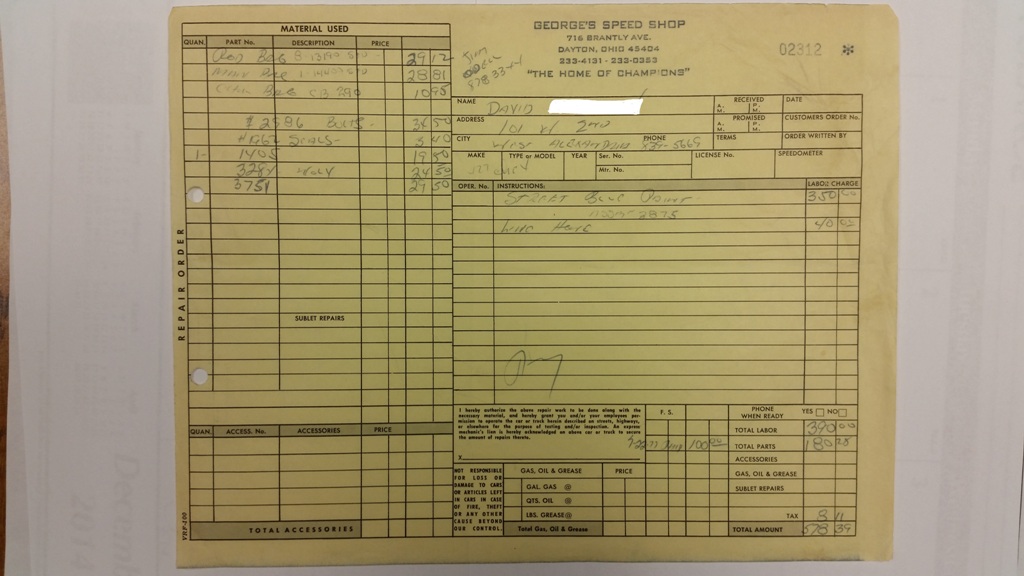 GEORGE'S SPEED SHOP
716 BRANTLY AVE.
DAYTON, OHIO 45404
233-4131 - 233-0353
"THE HOME OF CHAMPIONS"
02312 *
Jim
878 33
MATERIAL USED
QUAN. PART No. DESCRIPTION PRICE
Rod Brg 29 12
28 81
Cam Brg 10 95
2986 Bolts - 36 50
Seals - 3 40
1- 1405 19 50
24 50
3751 27 50
REPAIR ORDER
SUBLET REPAIRS
QUAN. ACCESS. No. ACCESSORIES PRICE
TOTAL ACCESSORIES
VRP-100
NAME DAVID
RECEIVED A.M. P.M. DATE
ADDRESS 101 W 2nd
PROMISED A.M. P.M. CUSTOMERS ORDER No.
CITY West PHONE 839-5665 TERMS ORDER WRITTEN BY
MAKE TYPE or MODEL YEAR Ser. No. LICENSE No. SPEEDOMETER
Mtr. No.
OPER. No. INSTRUCTIONS: LABOR CHARGE
STREET 350 00
40 00
I hereby authorize the above repair work to be done along with the
necessary material, and hereby grant you and/or your employees per-
mission to operate the car or truck herein described on streets, highways,
or elsewhere for the purpose of testing and/or inspection. An express
mechanic's lien is hereby acknowledged on above car or truck to secure
the amount of repairs thereto.
X
F. S.
100 00
PHONE WHEN READY YES NO
TOTAL LABOR 390 00
TOTAL PARTS 180 28
ACCESSORIES
GAS, OIL & GREASE
SUBLET REPAIRS
TAX 8 11
TOTAL AMOUNT 578 39
NOT RESPONSIBLE
FOR LOSS OR
DAMAGE TO CARS
OR ARTICLES LEFT
IN CARS IN CASE
OF FIRE, THEFT
OR ANY OTHER
CAUSE BEYOND
OUR CONTROL.
GAS, OIL & GREASE PRICE
GAL. GAS @
QTS. OIL @
LBS. GREASE @
Total Gas, Oil & Grease